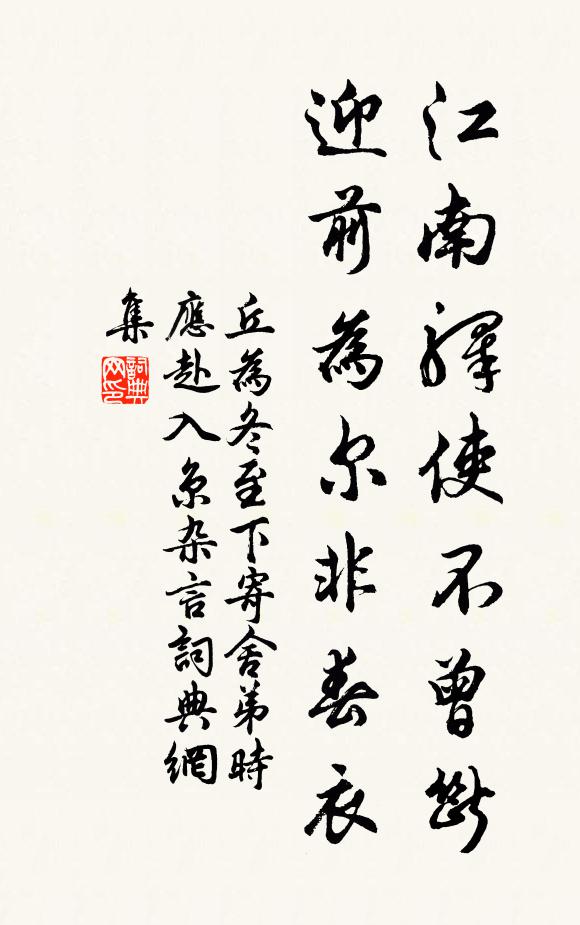 江南驛使不曾斷
迎前為尔非春衣
丘為冬至下寄舍弟時
應赴入京杂言詞典網
集
詞典
网印